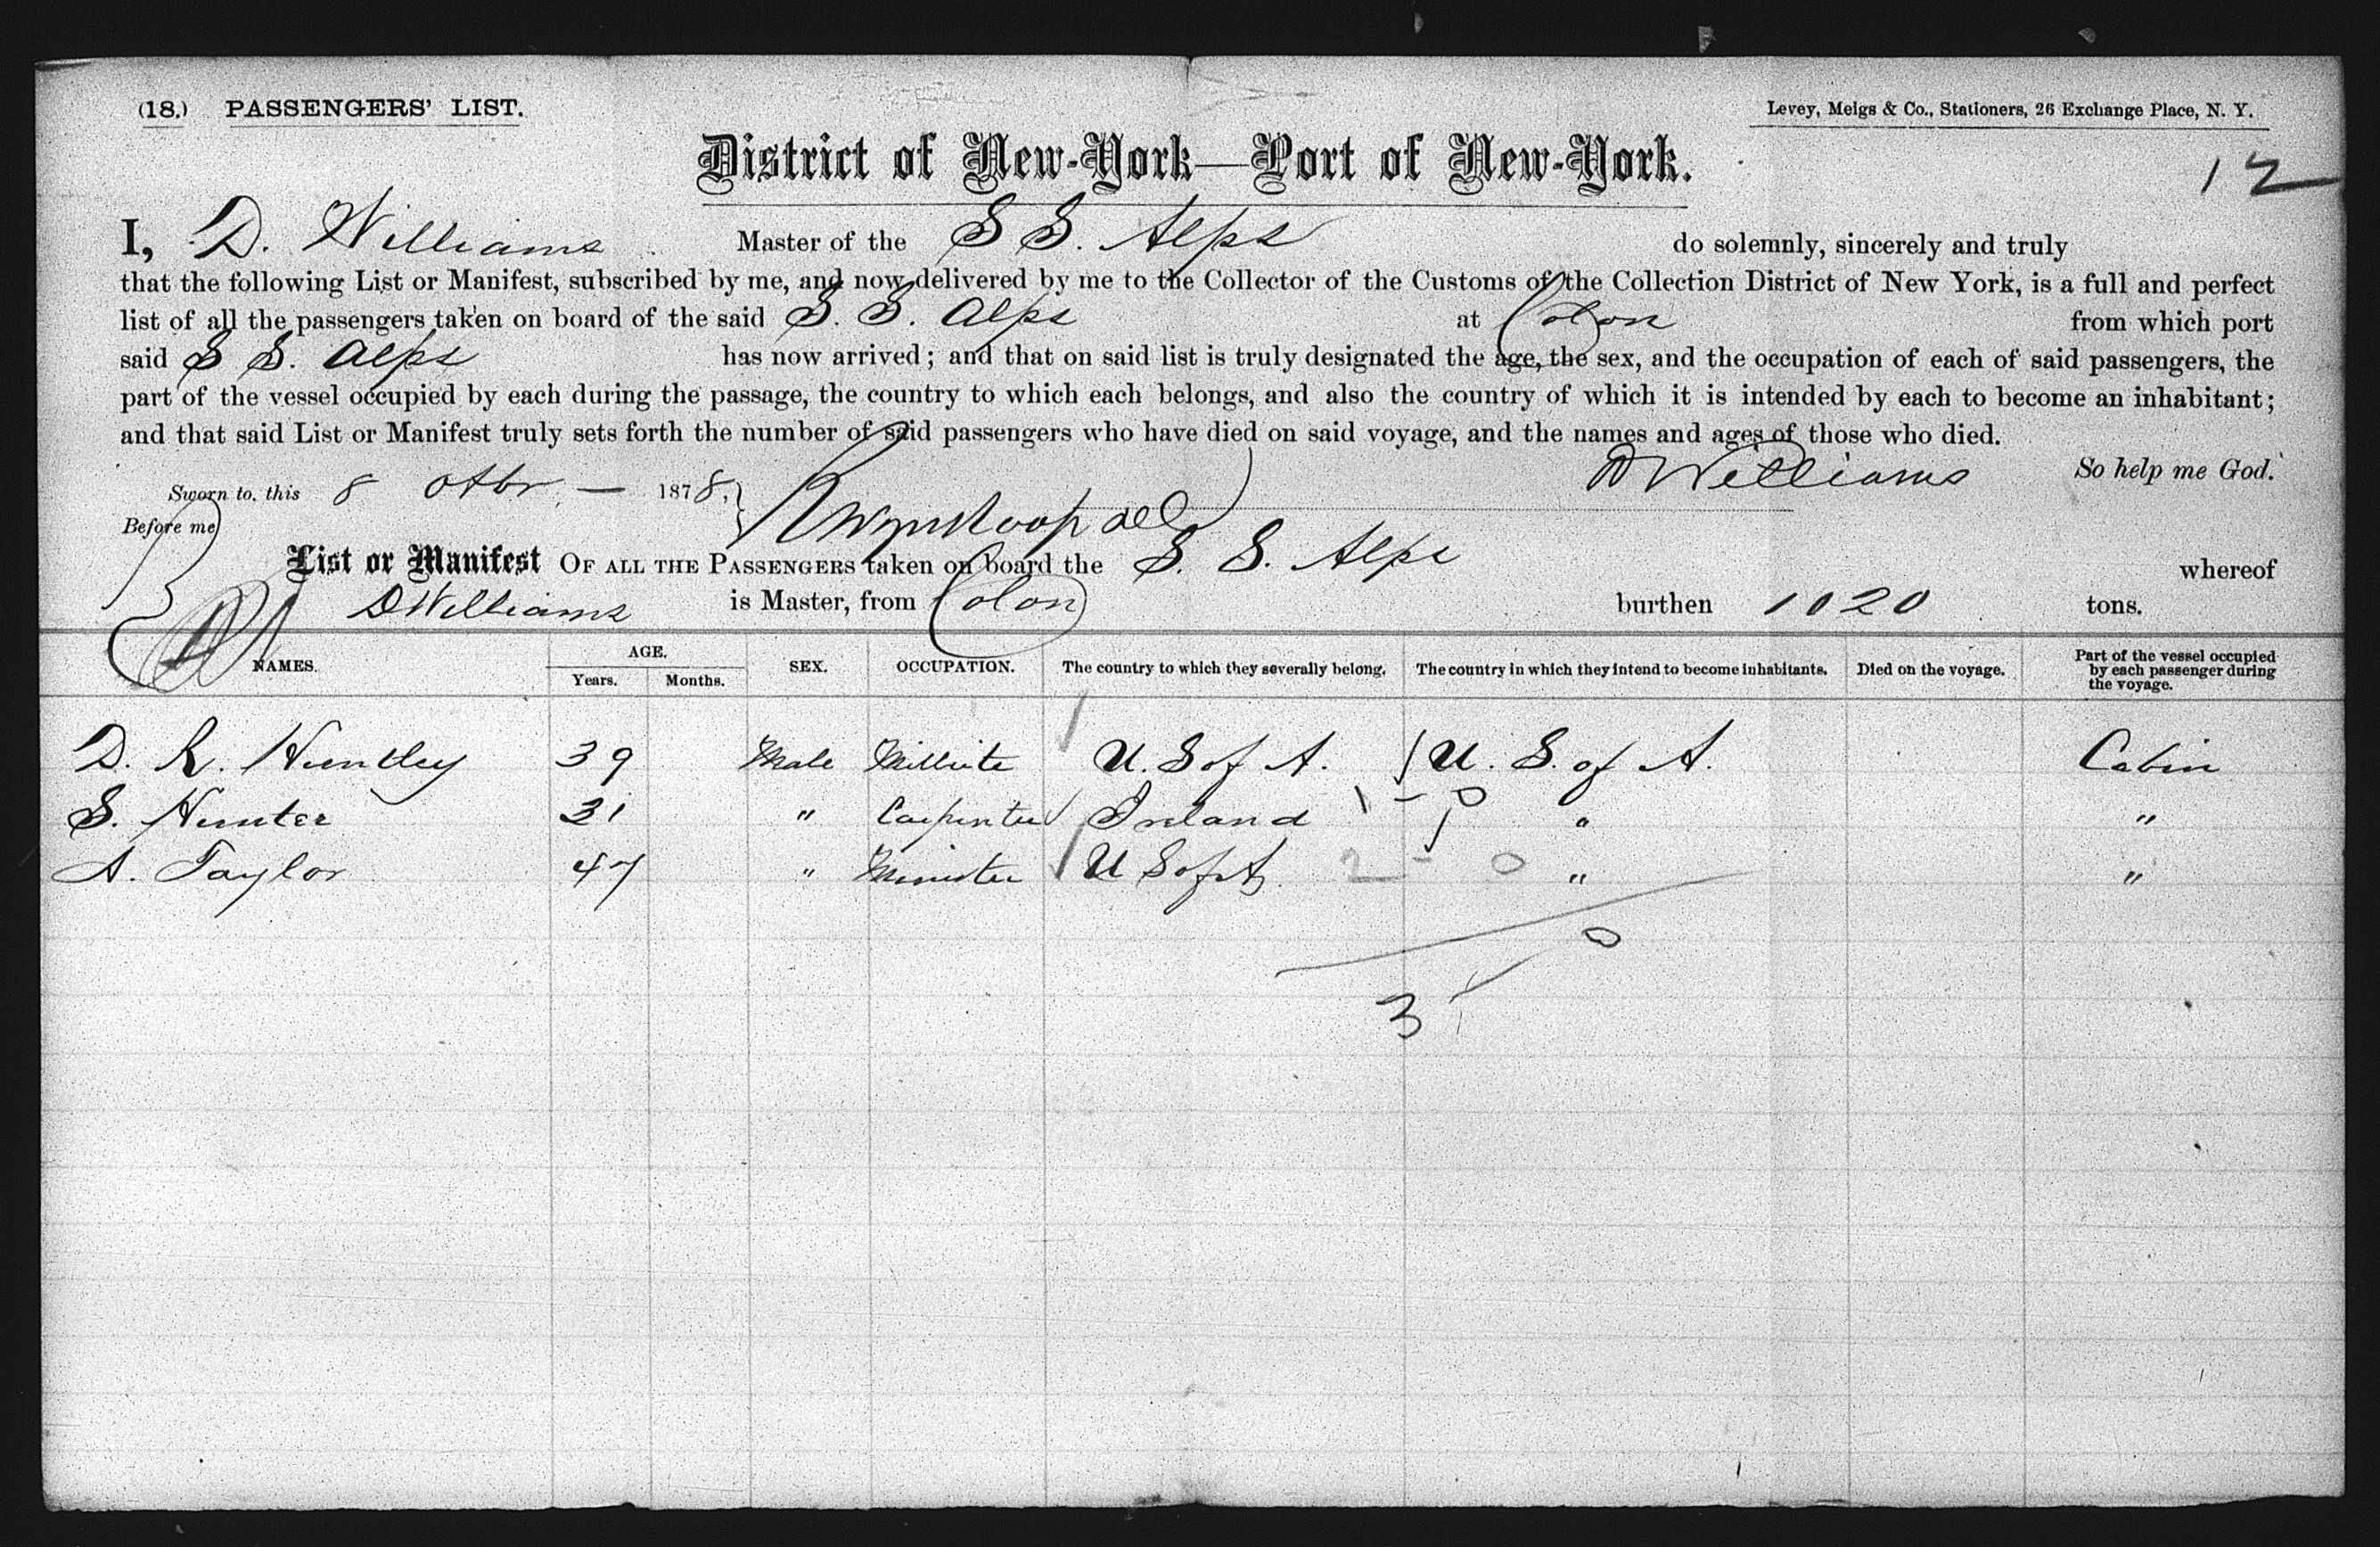 (18.) PASSENGERS' LIST. Levey, Meigs & Co., Stationers, 26 Exchange Place, N. Y.
District of New-York—Port of New-York.
12
I, D. Williams Master of the S S. Alps do solemnly, sincerely and truly
that the following List or Manifest, subscribed by me, and now delivered by me to the Collector of the Customs of the Collection District of New York, is a full and perfect
list of all the passengers taken on board of the said S. S. Alps at Colon from which port
said S S. Alps has now arrived; and that on said list is truly designated the age, the sex, and the occupation of each of said passengers, the
part of the vessel occupied by each during the passage, the country to which each belongs, and also the country of which it is intended by each to become an inhabitant;
and that said List or Manifest truly sets forth the number of said passengers who have died on said voyage, and the names and ages of those who died.
D Williams So help me God.
Sworn to, this 8 Otbr — 1878,
Before me
List or Manifest OF ALL THE PASSENGERS taken on board the S. S. Alps whereof
D Williams is Master, from Colon burthen 1020 tons.
NAMES. AGE. Years. Months. SEX. OCCUPATION. The country to which they severally belong. The country in which they intend to become inhabitants. Died on the voyage. Part of the vessel occupied by each passenger during the voyage.
D. R. Huntley 39 Male U. S of A. U. S. of A. Cabin
S. Hunter 31 " Carpenter Ireland 1 - 0 " "
A. Taylor 47 " Minister U S of A 2 - 0 " "
0
3